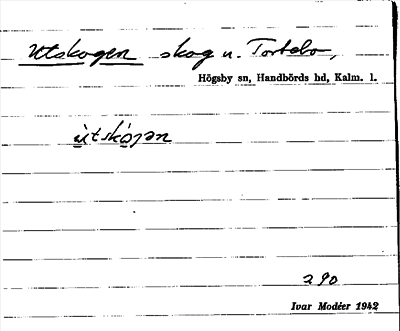 Utskogen skog u. Tortebo,
Högsby sn, Handbörds hd, Kalm. l.
ùtskó̱ɡan
290
Ivar Modéer 1942